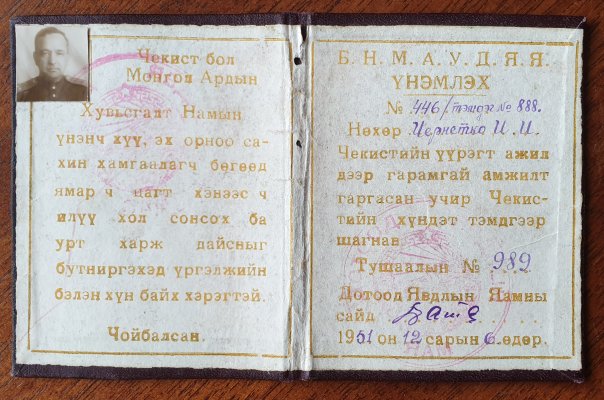 Чекист бол
Монгол Ардын
Хувьсгалт Намын
үнэнч хүү, эх орноо са-
хин хамгаалагч бөгөөд
ямар ч цагт хэнээс ч
илүү хол сонсох ба
урт харж дайсныг
бутниргэхэд үргэлжийн
бэлэн хүн байх хэрэгтэй.
Чойбалсан.
Б. Н. М. А. У. Д. Я. Я.
ҮНЭМЛЭХ
№ 446/тэмдэг № 888.
Нөхөр Чернетко И. И.
Чекистийн үүрэгт ажил
дээр гарамгай амжилт
гаргасан учир Чекис-
тийн хүндэт тэмдгээр
шагнав.
Тушаалын № 989
Дотоод Явдлын Яамны
сайд
1951 он 12 сарын 6. өдөр.